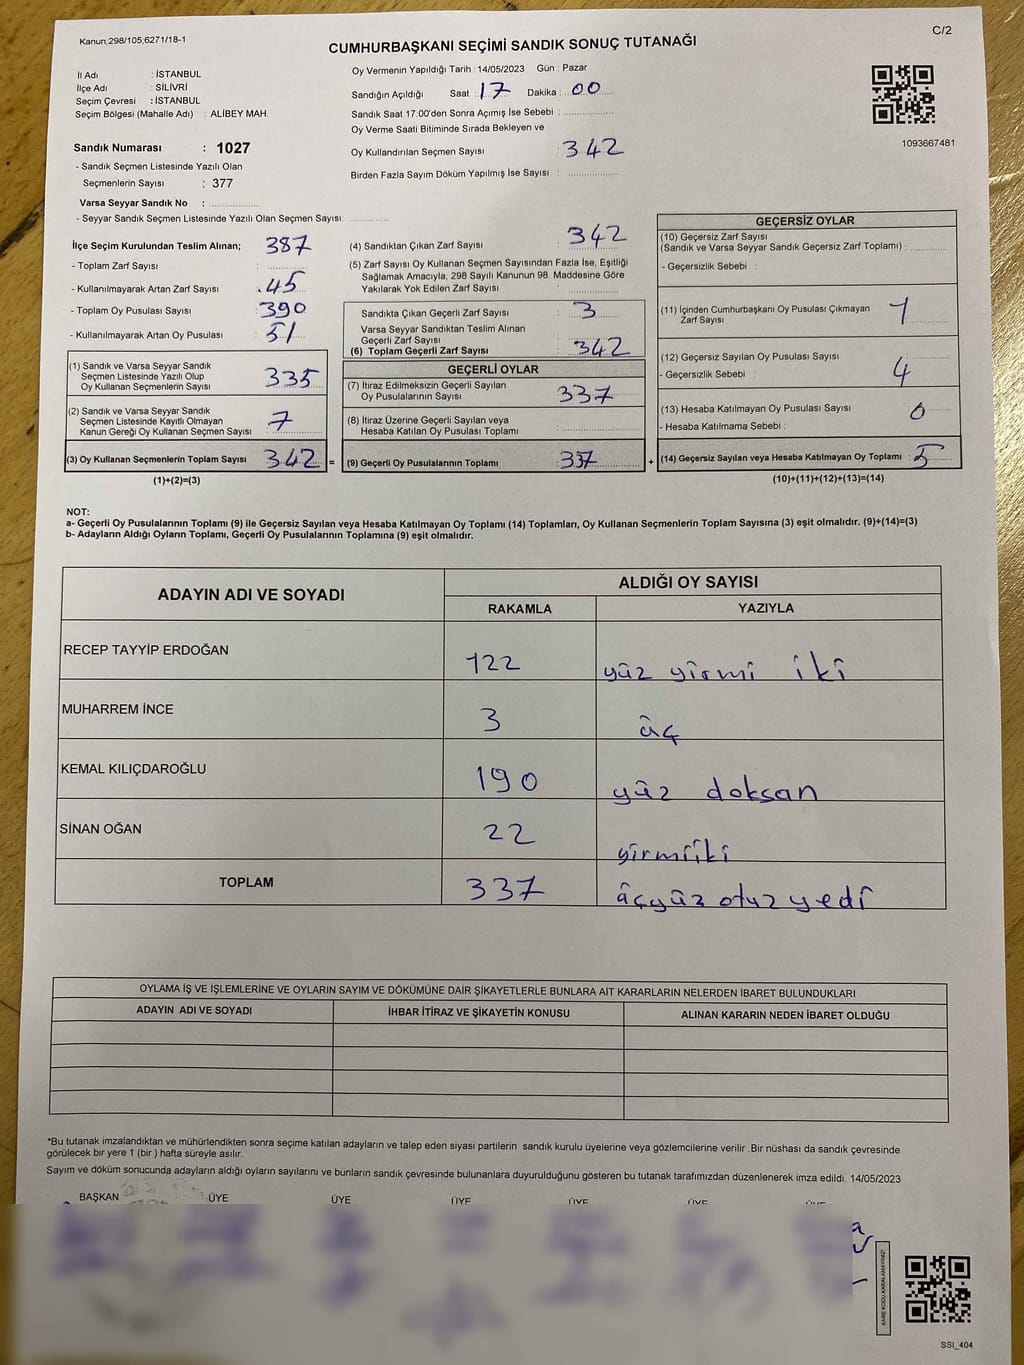 Kanun;298/105;6271/18-1
C/2
CUMHURBAŞKANI SEÇİMİ SANDIK SONUÇ TUTANAĞI
İl Adı : İSTANBUL
İlçe Adı : SİLİVRİ
Seçim Çevresi : İSTANBUL
Seçim Bölgesi (Mahalle Adı) : ALİBEY MAH.
Sandık Numarası : 1027
- Sandık Seçmen Listesinde Yazılı Olan
Seçmenlerin Sayısı : 377
Varsa Seyyar Sandık No :
- Seyyar Sandık Seçmen Listesinde Yazılı Olan Seçmen Sayısı:
Oy Vermenin Yapıldığı Tarih : 14/05/2023 Gün : Pazar
Sandığın Açıldığı Saat : 17 Dakika : 00
Sandık Saat 17:00'den Sonra Açmış İse Sebebi :
Oy Verme Saati Bitiminde Sırada Bekleyen ve
Oy Kullandırılan Seçmen Sayısı : 342
Birden Fazla Sayım Döküm Yapılmış İse Sayısı :
1093667481
İlçe Seçim Kurulundan Teslim Alınan; 387
- Toplam Zarf Sayısı :
- Kullanılmayarak Artan Zarf Sayısı : 45
- Toplam Oy Pusulası Sayısı : 390
- Kullanılmayarak Artan Oy Pusulası : 51
(1) Sandık ve Varsa Seyyar Sandık
Seçmen Listesinde Yazılı Olup
Oy Kullanan Seçmenlerin Sayısı 335
(2) Sandık ve Varsa Seyyar Sandık
Seçmen Listesinde Kayıtlı Olmayan
Kanun Gereği Oy Kullanan Seçmen Sayısı 7
(3) Oy Kullanan Seçmenlerin Toplam Sayısı 342 =
(1)+(2)=(3)
(4) Sandıktan Çıkan Zarf Sayısı : 342
(5) Zarf Sayısı Oy Kullanan Seçmen Sayısından Fazla İse, Eşitliği
Sağlamak Amacıyla; 298 Sayılı Kanunun 98. Maddesine Göre
Yakılarak Yok Edilen Zarf Sayısı :
Sandıkta Çıkan Geçerli Zarf Sayısı : 3
Varsa Seyyar Sandıktan Teslim Alınan
Geçerli Zarf Sayısı :
(6) Toplam Geçerli Zarf Sayısı : 342
GEÇERLİ OYLAR
(7) İtiraz Edilmeksizin Geçerli Sayılan
Oy Pusulalarının Sayısı : 337
(8) İtiraz Üzerine Geçerli Sayılan veya
Hesaba Katılan Oy Pusulası Toplamı :
(9) Geçerli Oy Pusulalarının Toplamı : 337 +
GEÇERSİZ OYLAR
(10) Geçersiz Zarf Sayısı
(Sandık ve Varsa Seyyar Sandık Geçersiz Zarf Toplamı) :
- Geçersizlik Sebebi :
(11) İçinden Cumhurbaşkanı Oy Pusulası Çıkmayan
Zarf Sayısı : 1
(12) Geçersiz Sayılan Oy Pusulası Sayısı : 4
- Geçersizlik Sebebi :
(13) Hesaba Katılmayan Oy Pusulası Sayısı : 0
- Hesaba Katılmama Sebebi :
(14) Geçersiz Sayılan veya Hesaba Katılmayan Oy Toplamı : 5
(10)+(11)+(12)+(13)=(14)
NOT:
a- Geçerli Oy Pusulalarının Toplamı (9) ile Geçersiz Sayılan veya Hesaba Katılmayan Oy Toplamı (14) Toplamları, Oy Kullanan Seçmenlerin Toplam Sayısına (3) eşit olmalıdır. (9)+(14)=(3)
b- Adayların Aldığı Oyların Toplamı, Geçerli Oy Pusulalarının Toplamına (9) eşit olmalıdır.
ADAYIN ADI VE SOYADI ALDIĞI OY SAYISI
RAKAMLA YAZIYLA
RECEP TAYYİP ERDOĞAN 122 yüz yirmi iki
MUHARREM İNCE 3 üç
KEMAL KILIÇDAROĞLU 190 yüz doksan
SİNAN OĞAN 22 yirmiiki
TOPLAM 337 üçyüz otuz yedi
OYLAMA İŞ VE İŞLEMLERİNE VE OYLARIN SAYIM VE DÖKÜMÜNE DAİR ŞİKAYETLERLE BUNLARA AİT KARARLARIN NELERDEN İBARET BULUNDUKLARI
ADAYIN ADI VE SOYADI İHBAR İTİRAZ VE ŞİKAYETİN KONUSU ALINAN KARARIN NEDEN İBARET OLDUĞU
*Bu tutanak imzalandıktan ve mühürlendikten sonra seçime katılan adayların ve talep eden siyasi partilerin sandık kurulu üyelerine veya gözlemcilerine verilir .Bir nüshası da sandık çevresinde
görülecek bir yere 1 (bir ) hafta süreyle asılır.
Sayım ve döküm sonucunda adayların aldığı oyların sayılarını ve bunların sandık çevresinde bulunanlara duyurulduğunu gösteren bu tutanak tarafımızdan düzenlenerek imza edildi. 14/05/2023
BAŞKAN ÜYE ÜYE ÜYE ÜYE ÜYE
KARE KODU KARALAMAYINIZ!
SSI_404